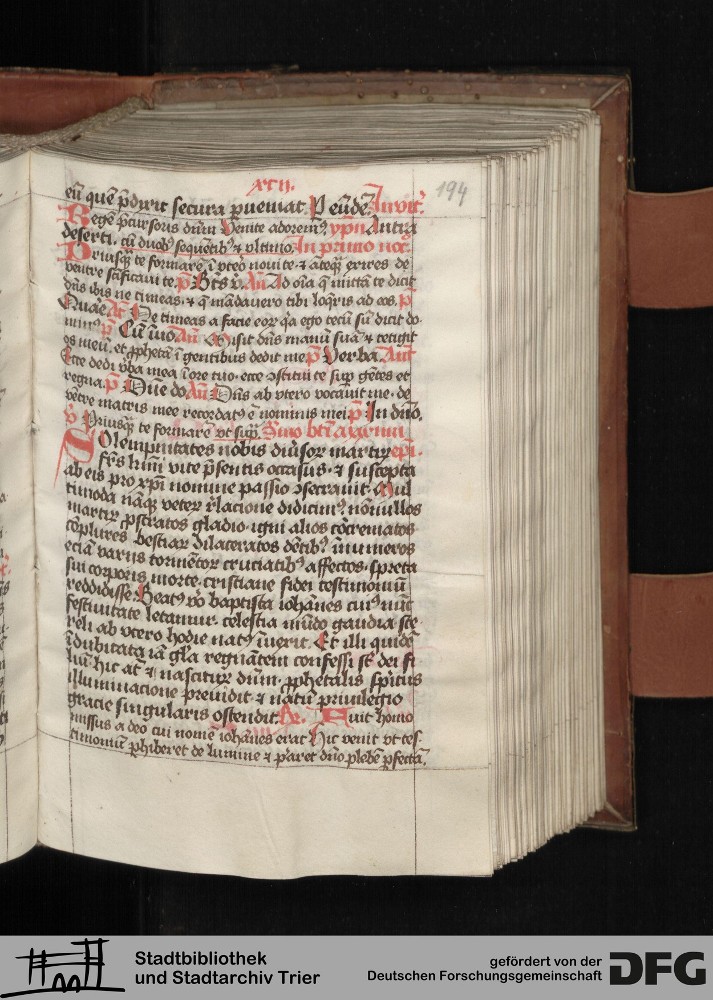 xcii.
194
eū quē p̄dixit secura pueniat. P eūdē. Inuit.
Regē p̄cursoris dn̄m Venite adorem⁹. ypn̄ Antra
deserti. cū duob⁹ sequētib⁹ ⁊ vltimo. In primo noc.
Priusq̄ te formarē ī vteō noui te ⁊ āteq̄ exires de
ventre sc̄ificaui te. p̄ Bt̄s v. An̄ Ad oīa q̄ mittā te dicit
dn̄s ibis ne timeas. ⁊ q̄ mādauero tibi loq̄ris ad eos. p̄
Quare An̄ Ne timeas a facie eoꝝ q̄a ego tecū sū dicit do
min⁹ p̄ Cū īuo An̄ Misit dn̄s manū suā ⁊ tetigit
os meū. et ꝓphetā ī gentibus dedit me p̄ Verba. An̄
Ecce dedi v̄ba mea ī ore tuo. ecce ↄstitui te suꝑ gētes et
regna. p̄ Dn̄e do An̄ Dn̄s ab vtero vocauit me. de
vētre matris mee recordat⁹ ē nominis mei p̄ In dn̄o.
v̄ Priusq̄ te formarē vt sup̄. Smo bt̄i augustini
Solempnitates nobis diūsoꝝ martirꝝ epi.
frēs kr̄mi vite p̄sentis occasus. ⁊ suscepta
ab eis pro xp̄i nomine passio ↄsecrauit. Mul
timoda nāq̄ veteꝝ r̄lacione didicim⁹ nōnullos
martirꝝ ꝓstratos gladio. igni alios cōcrematos
cōplures bestiaꝝ dilaceratos dētib⁹ īnumeros
eciā variis tormētoꝝ cruciatib⁹ affectos. spreta
sui corporis morte. cristiane fidei testimoniū
reddidisse. Beat⁹ v̄o baptista ioh̄nes cui⁹ nūc
festiuitate letamur. celestia mūdo gaudia ste
reli ab vtero hodie nat⁹ īuexit. Et illi quidē
īdubitata iā gl̄a regnātem confessi sūt dei fi
liū. hic aūt ⁊ nascituꝝ dn̄m. ꝓphetalis sp̄ūs
illuminacione preuidit ⁊ natū priuilegio
gracie singularis ostendit. R. Fuit homo
missus a deo cui nomē ioh̄nes erat Hic venit vt tes
timoniū phiberet de lumine ⁊ p̄aret dn̄o plebē ꝑfectā.
Stadtbibliothek
und Stadtarchiv Trier
gefördert von der
Deutschen Forschungsgemeinschaft DFG